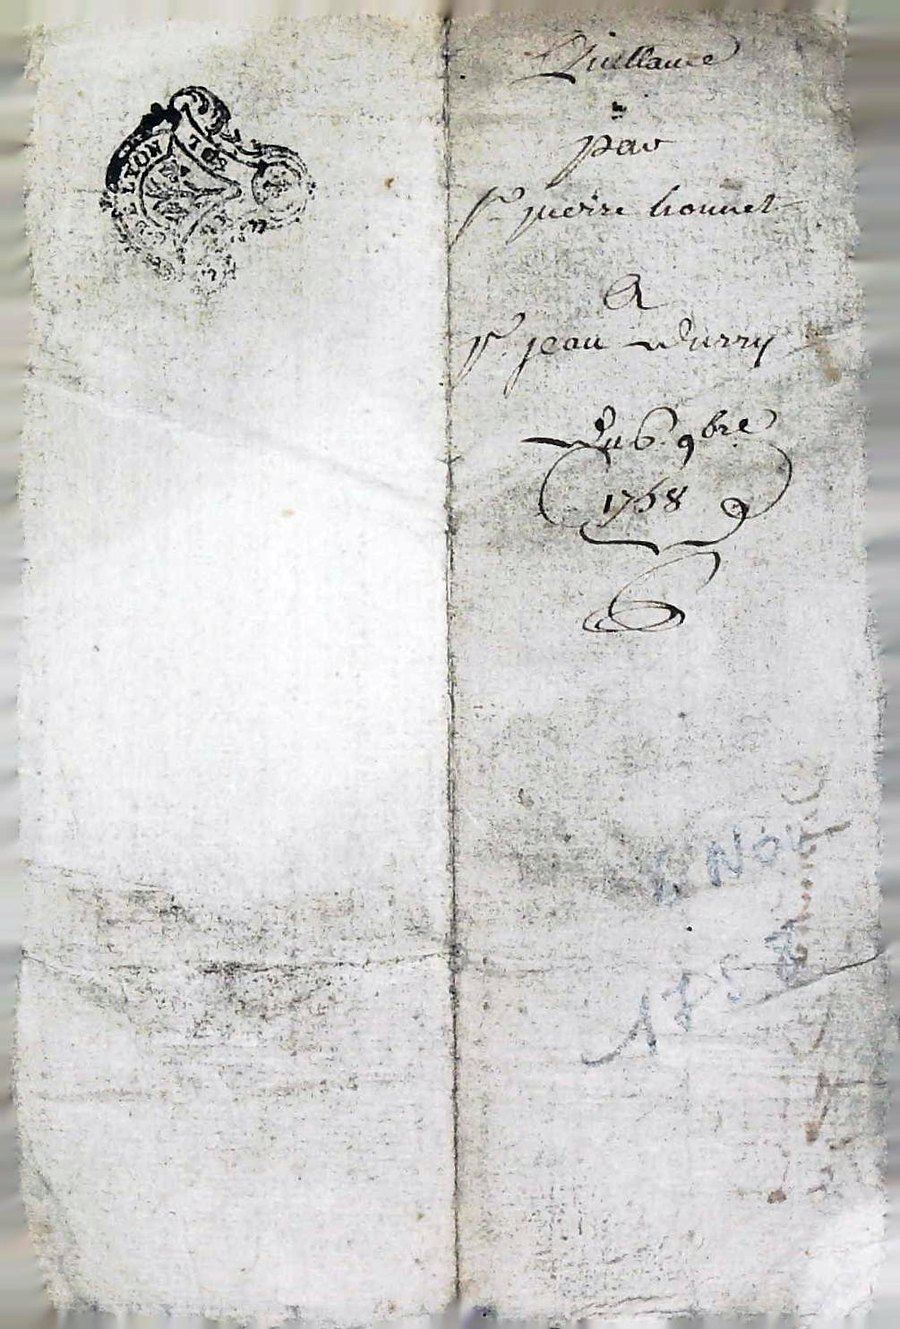 LYON
Quittance
par
Sr pierre bonnet
A
Sr jean Durry
Du 6 9bre
1758
6 Nov
1758